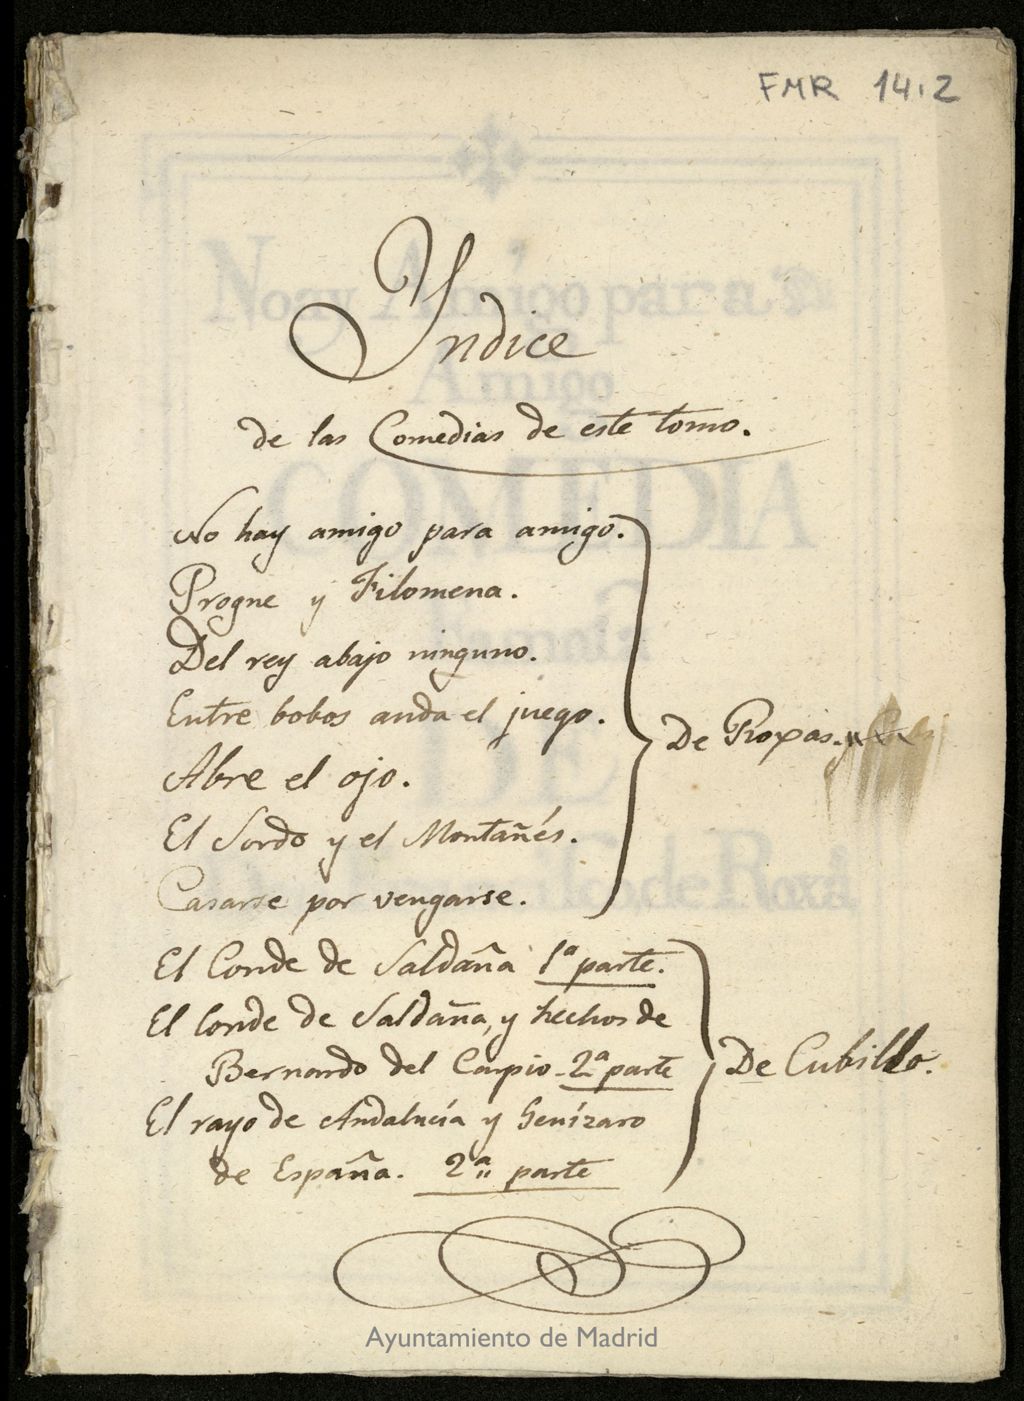 FMR 14.2
Yndice
de las Comedias de este tomo.
No hay amigo para amigo.
Progne y Filomena.
Del rey abajo ninguno.
Entre bobos anda el juego.
De Roxas.
Abre el ojo.
El Sordo y el Montañés.
Casarse por vengarse.
El Conde de Saldaña 1ª parte.
El Conde de Saldaña, y hechos de
Bernardo del Carpio - 2ª parte
De Cubillo.
El rayo de Andalucía y Genízaro
de España. 2ª parte
Ayuntamiento de Madrid
No ay Amigo para
Amigo
COMEDIA
DE
de Roxas